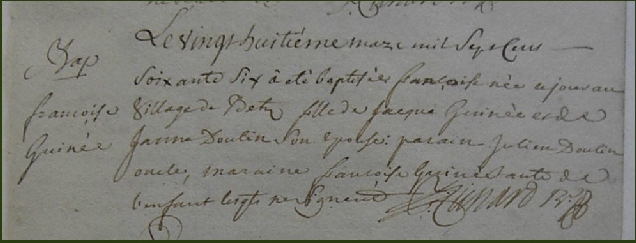 Le vingt huitiéme mars mil Sept Cens
Bap
Soixante Six à eté baptisée françoise née ce jour au
françoise
village de Betz fille de jacque Guinée et de
Guinée
Janne Doulin Son epouse: parain Julien Doulin
oncle, maraine francoise Guinée tante de
l'enfant lesqls ne signent